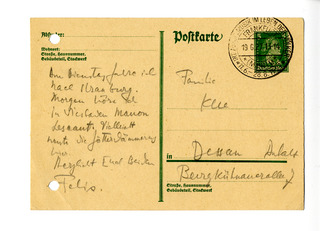 Absender:
Wohnort:
Straße, Hausnummer,
Gebäudeteil, Stockwerk
Am Dienstag fahre ich
nach Strassburg.
Morgen höre ich
in Wiesbaden Manon
Lescaut. Vielleicht
heute die Götterdämmerung
hier.
Herzlichst Euch Beiden
Felix.
Postkarte
Familie
Klee
in
Dessau Anhalt
Burgkühnauerallee 7
Straße, Hausnummer,
Gebäudeteil, Stockwerk